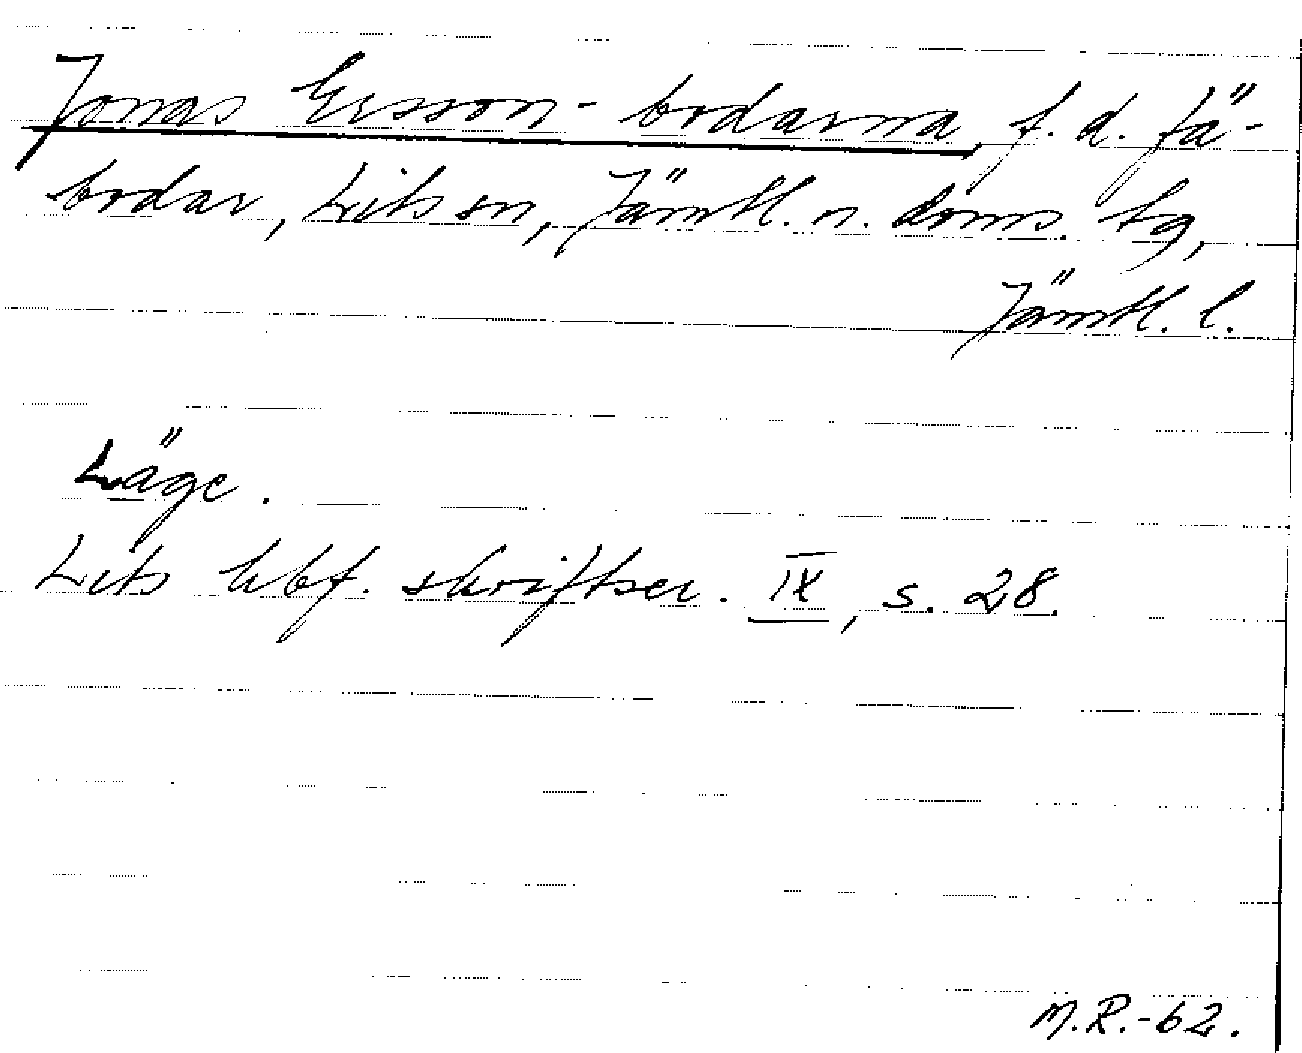 Jonas Ersson-bodarna f. d. fä-
bodar, Lits sn, Jämtl. n. doms. tg,
Jämtl. l.
Läge.
Lits hbf. skriftser. IX, s. 28.
M.R.-62.